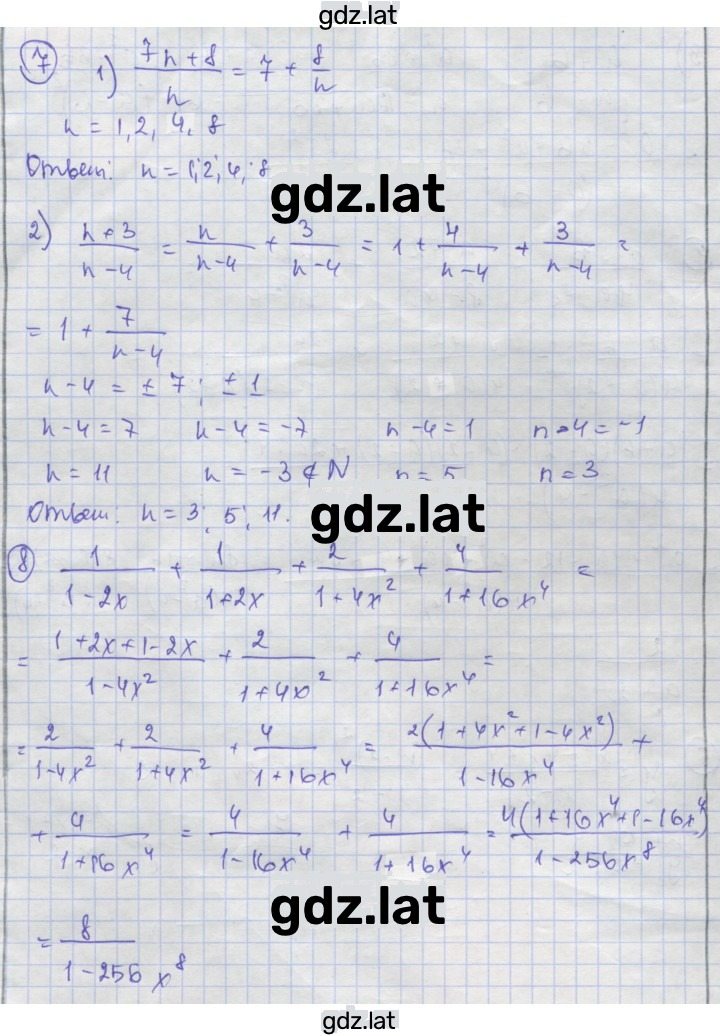 gdz.lat
7 1) (7n+8)/n = 7 + 8/n
n = 1, 2, 4, 8
Ответ: n = 1; 2; 4; 8
gdz.lat
2) (n+3)/(n-4) = n/(n-4) + 3/(n-4) = 1 + 4/(n-4) + 3/(n-4) =
= 1 + 7/(n-4)
n-4 = ±7; ±1
n-4=7 n-4=-7 n-4=1 n-4=-1
n=11 n=-3∉N n=5 n=3
Ответ: n=3; 5; 11.
gdz.lat
8 1/(1-2x) + 1/(1+2x) + 2/(1+4x²) + 4/(1+16x⁴) =
= (1+2x+1-2x)/(1-4x²) + 2/(1+4x²) + 4/(1+16x⁴) =
= 2/(1-4x²) + 2/(1+4x²) + 4/(1+16x⁴) = 2(1+4x²+1-4x²)/(1-16x⁴) +
+ 4/(1+16x⁴) = 4/(1-16x⁴) + 4/(1+16x⁴) = 4(1+16x⁴+1-16x⁴)/(1-256x⁸)
gdz.lat
= 8/(1-256x⁸)
gdz.lat